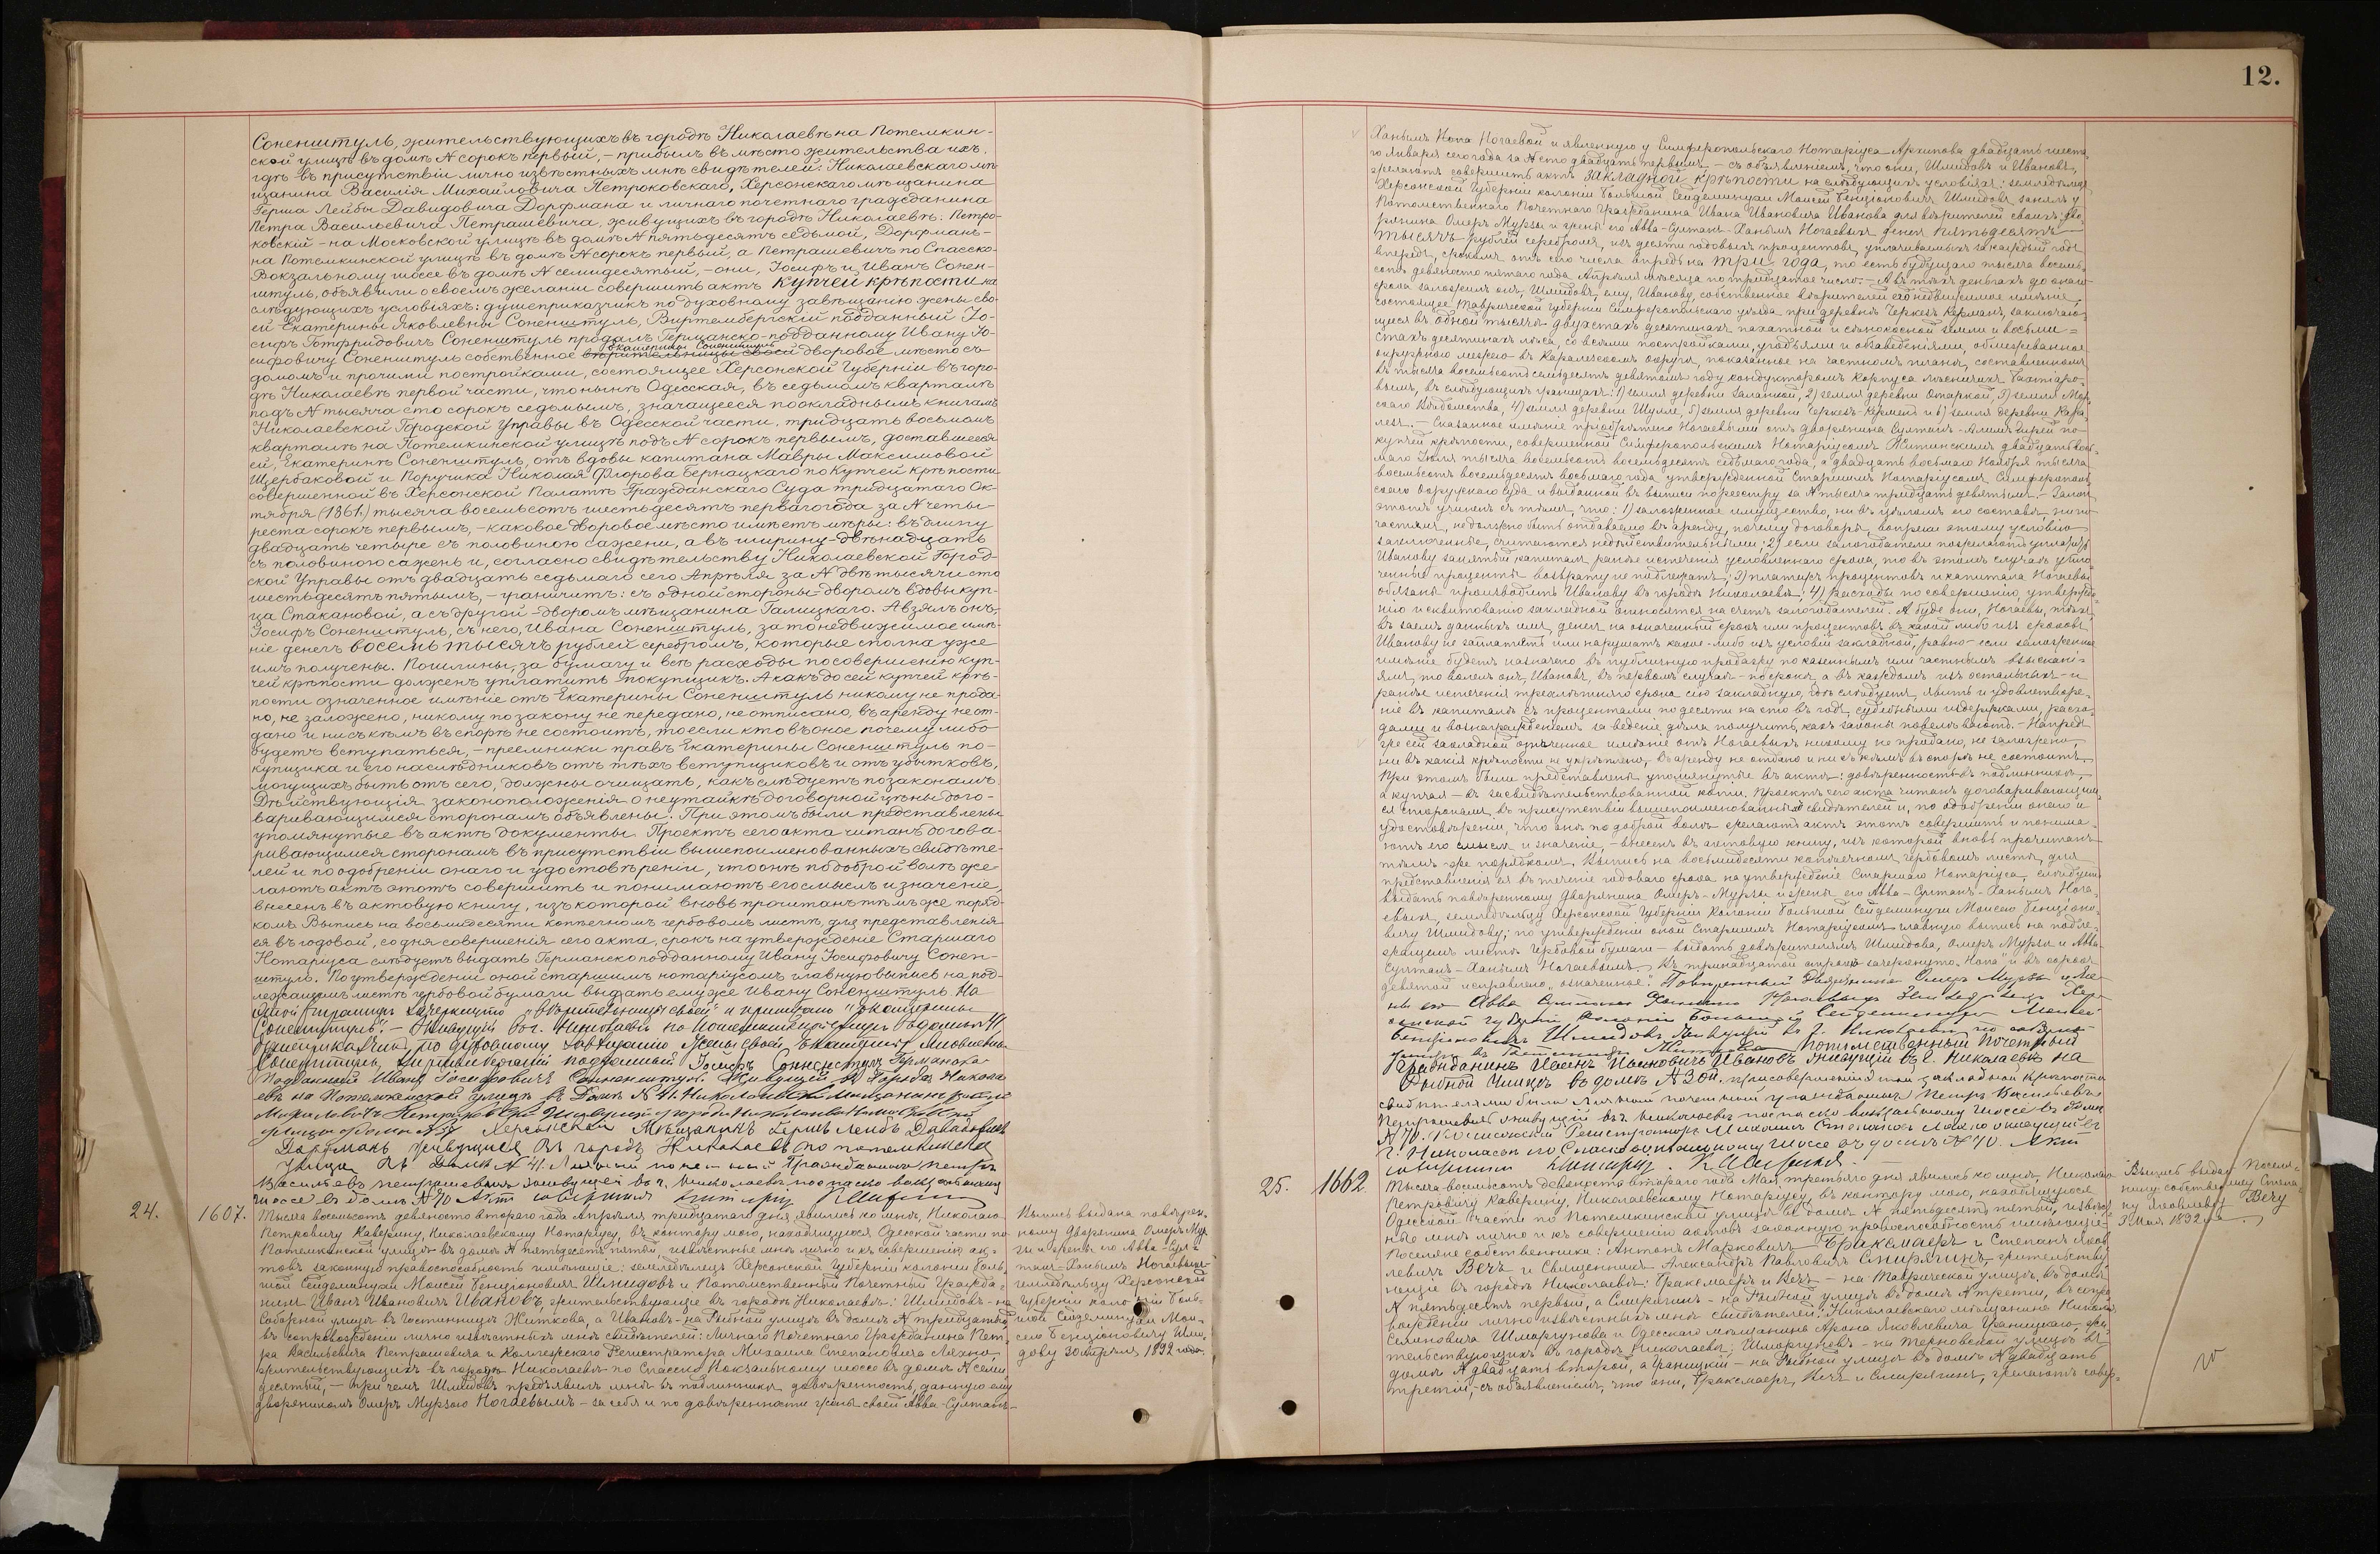 12.
Соненштуль, жительствующихъ въ городѣ Николаевѣ на Потемкин-
ской улицѣ въ домѣ № сорокъ первый, – прибылъ въ мѣсто жительства ихъ,
гдѣ въ присутствіи лично извѣстныхъ мнѣ свидѣтелей: Николаевскаго мѣ-
щанина Василія Михайловича Петроковскаго, Херсонскаго мѣщанина
Герша Лейбы Давидовича Дорфмана и личнаго почетнаго гражданина
Петра Васильевича Петрашевича, живущихъ въ городѣ Николаевѣ: Петро-
ковскій – на Московской улицѣ въ домѣ № пятьдесятъ седьмой, Дорфманъ-
на Потемкинской улицѣ въ домѣ № сорокъ первый, а Петрашевичъ по Спасско-
Вокзальному шоссе въ домѣ № семидесятый, – они, Іосифъ и Иванъ Сонен-
штуль, объявили о своемъ желаніи совершить актъ купчей крѣпости на
слѣдующихъ условіяхъ: душеприказчикъ по духовному завѣщанію жены сво-
ей Екатерины Яковлевны Соненштуль, Виртембергскій подданный Іо-
сифъ Готфридовичъ Соненштуль продалъ Германско-подданному Ивану Іо-
Екатерины Соненштуль
сифовичу Соненштуль собственное вѣрительницы своей дворовое мѣсто съ
домомъ и прочими постройками, состоящее Херсонской Губерніи въ горо-
дѣ Николаевѣ первой части, что нынѣ Одесская, въ седьмомъ кварталѣ
подъ № тысяча сто сорокъ седьмымъ, значащееся по окладнымъ книгамъ
Николаевской Городской Управы въ Одесской части, тридцать восьмомъ
кварталѣ на Потемкинской улицѣ подъ № сорокъ первымъ, доставшееся
ей, Екатеринѣ Соненштуль, отъ вдовы капитана Мавры Максимовой
Щербаковой и Поручика Николая Флорова Бернацкаго по купчей крѣпости
совершенной въ Херсонской Палатѣ Гражданскаго Суда тридцатаго Ок-
тября (1861.) тысяча восемьсотъ шестьдесятъ перваго года за № четы-
реста сорокъ первымъ, – каковое дворовое мѣсто имѣетъ мѣры: въ длину
двадцать четыре съ половиною сажени, а въ ширину – двѣнадцать
съ половиною сажень и, согласно свидѣтельству Николаевской Город-
ской Управы отъ двадцать седьмаго сего Апрѣля за № двѣ тысячи сто
шестьдесятъ пятымъ, – граничитъ: съ одной стороны – дворомъ вдовы куп-
ца Стакановой, а съ другой – дворомъ мѣщанина Галицкаго. А взялъ онъ,
Іосифъ Соненштуль, съ него, Ивана Соненштуль, за то недвижимое имѣ-
ніе денегъ восемь тысячъ рублей серебромъ, которые сполна уже
имъ получены. Пошлины, за бумагу и всѣ расходы по совершенію куп-
чей крѣпости долженъ уплатить покупщикъ. А какъ до сей купчей крѣ-
пости означенное имѣніе отъ Екатерины Соненштуль никому не прода-
но, не заложено, никому по закону не передано, не отписано, въ аренду не от-
дано и ни съ кѣмъ въ спорѣ не состоитъ, то если кто въ оное почему либо
будетъ вступаться, – преемники правъ Екатерины Соненштуль по-
купщика и его наслѣдниковъ отъ тѣхъ вступщиковъ и отъ убытковъ,
могущихъ быть отъ сего, должны очищать, какъ слѣдуетъ по законамъ.
Дѣйствующія законоположенія о неутайкѣ договорной цѣны дого-
варивающимся сторонамъ объявлены. При этомъ были представлены
упомянутые въ актѣ документы. Проектъ сего акта читанъ догова-
ривающимся сторонамъ въ присутствіи вышепоименованныхъ свидѣте-
лей и по одобреніи онаго и удостовѣреніи, что онѣ по доброй волѣ же-
лаютъ актъ этотъ совершить и понимаютъ его смыслъ и значеніе,
внесенъ въ актовую книгу, изъ которой вновь прочитанъ тѣмъ же поряд-
комъ. Выпись на восьмидесяти копѣечномъ гербовомъ листѣ, для представленія
ея въ годовой, со дня совершенія сего акта, срокъ на утвержденіе Старшаго
Нотаріуса слѣдуетъ выдать Германско-подданному Ивану Іосифовичу Сонен-
штуль. По утвержденіи оной старшимъ нотаріусомъ главную выпись на под-
лежащемъ листѣ гербовой бумаги выдать ему же Ивану Соненштуль. На
зачеркнуто "вѣрительницы своей" и приписано "Екатерины
Соненштуль". – Живущій въ г. Николаевѣ по Потемкинской улицѣ въ домѣ № 41,
по духовному завѣщанію жены своей Екатерины Яковлевны
Соненштуль, Виртембергскій подданный Іосифъ Соненштуль Германско
Подданный Иванъ Іосифовичъ Соненштуль. Живущій въ Городѣ Никола
евѣ на Потемкинской улицѣ въ Домѣ № 41. Николаевскій Мѣщанинъ Василій
Михайловичъ Петроковскій Живущій въ городѣ Николаевѣ на Московской
улицѣ Херсонскій Мѣщанинъ Гершъ Лейбъ Давидовичъ
Дорфманъ живущій въ городѣ Николаевѣ по потемкинской
Улицѣ въ Домѣ № 41. Личный почетный Гражданинъ Петръ
Васильевъ Петрашевичъ живущій въ г. Николаевѣ по спаско вокзальному
шоссе въ домѣ № 70 Актъ совершилъ Нотаріусъ
24. 1607.
Тысяча восемьсотъ девяносто втораго года Апрѣля тридцатаго дня, явились ко мнѣ, Николаю
Петровичу Каверину, Николаевскому Нотаріусу, въ контору мою, находящуюся Одесской части по
Потемкинской улицѣ въ домѣ № пятьдесятъ пятый, извѣстные мнѣ лично и къ совершенію ак-
товъ законную правоспособность имѣющіе: земледѣлецъ Херсонской Губерніи колоніи Боль-
шой Сейдеминухи Моисей Бенціоновичъ Шмидовъ и Потомственный Почетный Гражда-
нинъ Иванъ Ивановичъ Ивановъ, жительствующіе въ городѣ Николаевѣ: Шмидовъ – на
Соборной улицѣ въ Гостинницѣ Житкова, а Ивановъ – на Рыбной улицѣ въ домѣ № тридцатый
въ сопровожденіи лично извѣстныхъ мнѣ свидѣтелей: личнаго Почетнаго Гражданина Пет-
ра Васильевича Петрашевича и Коллежскаго Регистратора Михаила Степановича Лахно,
жительствующихъ въ городѣ Николаевѣ по Спасско Вокзальному шоссе въ домѣ № семи-
десятый, – при чемъ Шмидовъ предъявилъ мнѣ въ подлинникѣ довѣренность, данную ему
дворяниномъ Омеръ Мурзою Ногаевымъ – за себя и по довѣренности жены своей Абба-Султанъ-
Выпись выдана повѣрен-
ному Дворянина Омеръ Мур-
зы и жены его Абба-Сул-
танъ-Ханымъ Ногаевыхъ
земледѣльцу Херсонской
Губерніи колоніи Боль-
шой Сейдеминухи Мои-
сею Бенціоновичу Шми-
дову 30 Апрѣля 1892 года.
Ханымъ Ногаевой и явленную у Симферопольскаго Нотаріуса Архипова двадцать шеста-
го Января сего года за № сто двадцать первымъ, – съ объявленіемъ, что они, Шмидовъ и Ивановъ,
желаютъ совершить актъ закладной крѣпости на слѣдующихъ условіяхъ: земледѣлецъ
Херсонской Губерніи колоніи Большой Сейдеминухи Моисей Бенціоновичъ Шмидовъ занялъ у
Потомственнаго Почетнаго Гражданина Ивана Ивановича Иванова для вѣрителей своихъ дво-
рянина Омеръ Мурзы и жены его Абба-Султанъ-Ханымъ Ногаевыхъ денегъ пятьдесятъ
тысячъ рублей серебромъ, изъ десяти годовыхъ процентовъ, уплачиваемыхъ за каждый годъ
впередъ, срокомъ отъ сего числа впредь на три года, то есть будущаго тысяча восемь-
сотъ девяносто пятаго года Апрѣля мѣсяца по тридцатое число. – А въ тѣхъ деньгахъ до онаго
срока заложилъ онъ, Шмидовъ, ему, Иванову, собственное вѣрителей его недвижимое имѣніе,
состоящее Таврической Губерніи Симферопольскаго уѣзда при деревнѣ Черкезъ Керманъ, заключаю-
щееся въ одной тысячѣ двухстахъ десятинахъ пахатной и сѣнокосной земли и восьми-
стахъ десятинахъ лѣса, со всѣми постройками, угодьями и обзаведеніями, обмежеванное
окружною межею въ Каралезскомъ округѣ, показанное на частномъ планѣ, составленномъ
въ тысяча восемьсотъ семьдесятъ девятомъ году кондукторомъ Корпуса лѣсничихъ Бахтіаро-
вымъ, въ слѣдующихъ границахъ: 1) земля деревни Заланкой, 2) земля деревни Отаркой, 3) земля Мор-
скаго Вѣдомства, 4) земля деревни Шулле, 5) земля деревни Черкезъ-Керменъ и 6) земля деревни Кара-
лезъ. – Сказанное имѣніе пріобрѣтено Ногаевыми отъ дворянина Султанъ-Алимъ-Гирей по
купчей крѣпости, совершенной Симферопольскимъ Нотаріусомъ двадцать вось-
маго Іюля тысяча восемьсотъ восемьдесятъ седьмаго года, а двадцать восьмаго Ноября тысяча
восемьсотъ восемьдесятъ восьмаго года утвержденной Старшимъ Нотаріусомъ Симферополь-
скаго Окружнаго Суда и выданной въ выписи по реестру за № тысяча тридцать девятымъ. – Залогъ
этотъ учиненъ съ тѣмъ, что: 1) заложенное имущество, ни въ цѣломъ его составѣ, ни по
частямъ, не должно быть отдаваемо въ аренду, почему договоры, вопреки этому условію
заключенные, считаются недѣйствительными; 2) если залогодатели пожелаютъ уплатить
Иванову занятый капиталъ ранѣе истеченія условленнаго срока, то въ этомъ случаѣ упла-
ченные проценты возврату не подлежатъ; 3) платежъ процентовъ и капитала Ногаевы
обязаны производить Иванову въ городѣ Николаевѣ; 4) расходы по совершенію, утвержде-
нію и квитованію закладной относятся на счетъ залогодателей. – А буде они, Ногаевы, тѣхъ
въ заемъ данныхъ имъ, денегъ на означенный срокъ или процентовъ въ какой либо изъ сроковъ
Иванову не заплатятъ или нарушатъ какое-либо изъ условій закладной, равно – если заложенное
имѣніе будетъ назначено въ публичную продажу по казеннымъ или частнымъ взыскані-
ямъ, то воленъ онъ, Ивановъ, въ первомъ случаѣ – по срокѣ, а въ каждомъ изъ остальныхъ – и
ранѣе истеченія трехлѣтняго срока сію закладную, гдѣ слѣдуетъ, явить и удовлетворе-
ніе въ капиталѣ съ процентами по десяти на сто въ годъ, судебными издержками, расхо-
дами и вознагражденіемъ за веденіе дѣла получить, какъ законы повелѣваютъ. – Напредь
же сей закладной означенное имѣніе отъ Ногаевыхъ никому не продано, не заложено,
ни въ какія крѣпости не укрѣплено, въ аренду не отдано и ни съ кѣмъ въ спорѣ не состоитъ.
При этомъ были представлены упомянутые въ актѣ: довѣренность въ подлинникѣ,
а купчая – въ засвидѣтельствованной копіи. Проектъ сего акта читанъ договаривающим-
ся сторонамъ въ присутствіи вышепоименованныхъ свидѣтелей и, по одобреніи онаго и
удостовѣреніи, что онѣ по доброй волѣ желаютъ актъ этотъ совершить и понима-
ютъ его смыслъ и значеніе, – внесенъ въ актовую книгу, изъ которой вновь прочитанъ
тѣмъ же порядкомъ. Выпись на восьмидесяти копѣечномъ гербовомъ листѣ, для
представленія ея въ теченіе годоваго срока на утвержденіе Старшаго Нотаріуса, слѣдуетъ
выдать повѣренному Дворянина Омеръ-Мурзы и жены его Абба-Султанъ-Ханымъ Нога-
евыхъ, земледѣльцу Херсонской Губерніи колоніи Большой Сейдеминухи Моисею Бенціоно-
вичу Шмидову; по утвержденіи оной Старшимъ Нотаріусомъ главную выпись на подле-
жащемъ листѣ гербовой бумаги – выдать довѣрителямъ Шмидова, Омеръ Мурзы и Абба-
Султанъ-Ханымъ Ногаевымъ. Въ тринадцатой строкѣ зачеркнуто и въ сорокъ
девятой исправлено "означенное". Повѣренный Дворянина Омеръ Мурзы и Же
ны его Абба Султанъ Ханымъ Ногаевыхъ Земледѣлецъ Хер-
сонской губерніи колоніи Большой Сейдеминухи Моисей
Бенціоновичъ Шмидовъ Живущій въ г. Николаевѣ по соборной
въ Гостинницѣ Житкова Потомственный Почетный
Гражданинъ Иванъ Ивановичъ Ивановъ живущій въ г. Николаевѣ на
Рыбной Улицѣ въ домѣ № 30й. при совершеніи этой закладной крѣпости
свидѣтелями были Личный почетный гражданинъ Петръ Васильевъ
Петрашевичъ живущій въ г. Николаевѣ по спаско вокзальному Шоссе въ домѣ
№ 70. Колежскій Регистраторъ Михаилъ Степановъ Лахно живущій въ
г. Николаевѣ по Спаско вокзальному шоссе въ домѣ № 70. Актъ
совершилъ Нотаріусъ
25. 1662
Тысяча восемьсотъ девяносто втораго года Мая третьяго дня явились ко мнѣ, Николаю
Петровичу Каверину, Николаевскому Нотаріусу, въ контору мою, находящуюся
Одесской части по Потемкинской улицѣ въ домѣ № пятьдесятъ пятый, извѣст-
ные мнѣ лично и къ совершенію актовъ законную правоспособность имѣющіе
Поселяне собственники: Антонъ Марковичъ Бракемаеръ и Степанъ Яков-
левичъ Вечъ и Священникъ Александръ Павловичъ Смирягинъ, жительству-
ющіе въ городѣ Николаевѣ: Бракемаеръ и Вечъ – на Таврической улицѣ, въ домѣ
№ пятьдесятъ первый, а Смирягинъ – на Рыбной улицѣ въ домѣ № третій, въ сопро-
вожденіи лично извѣстныхъ мнѣ свидѣтелей: Николаевскаго мѣщанина Николая
Семеновича Шмаргунова и Одесскаго мѣщанина Арона Яковлевича Границкаго, жи-
тельствующихъ въ городѣ Николаевѣ: Шмаргуновъ – на Терновской улицѣ въ
домѣ № двадцать второй, а Границкій – на Рыбной улицѣ въ домѣ № двадцать
третій, – съ объявленіемъ, что они, Бракемаеръ, Вечъ и Смирягинъ, желаютъ совер-
Выпись выдана Поселя-
нину собственнику Степа-
ну Яковлеву Вечу
3 Мая 1892 г.